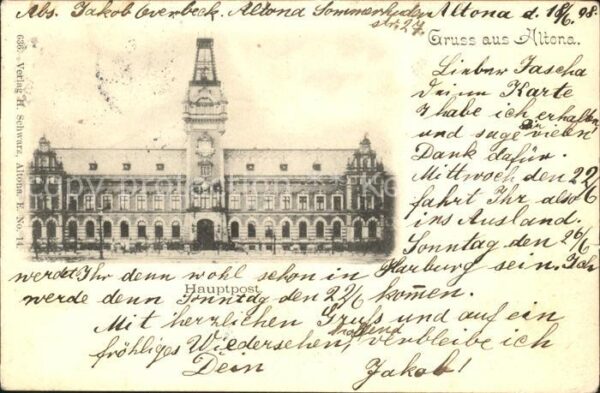 Abs. Jakob Overbeck. Altona Sommerhuder
str. 27.
Altona d. 18/6. 98.
Gruss aus Altona.
636. Verlag H. Schwarz, Altona. E. No. 14.
Lieber Jascha
Deine Karte
habe ich erhalten
und sage Dir vielen
Dank dafür.
Mittwoch den 22/6
fahrt Ihr also
ins Ausland.
Sonntag den 26/6
werdet Ihr denn wohl schon in Harburg sein. Ich
Hauptpost.
werde denn Sonntag den 22/6 kommen.
Mit herzlichen Gruß und auf ein
fröhliges Wiedersehen, verbleibe ich
Dein Jakob!